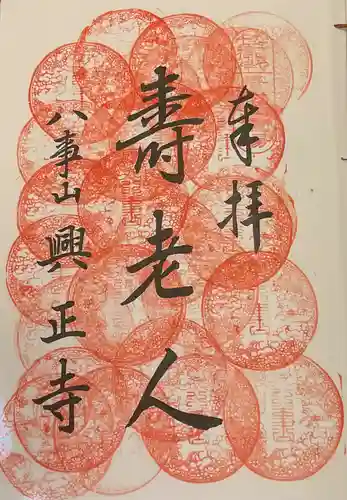 奉拝
壽老人
八事山興正寺